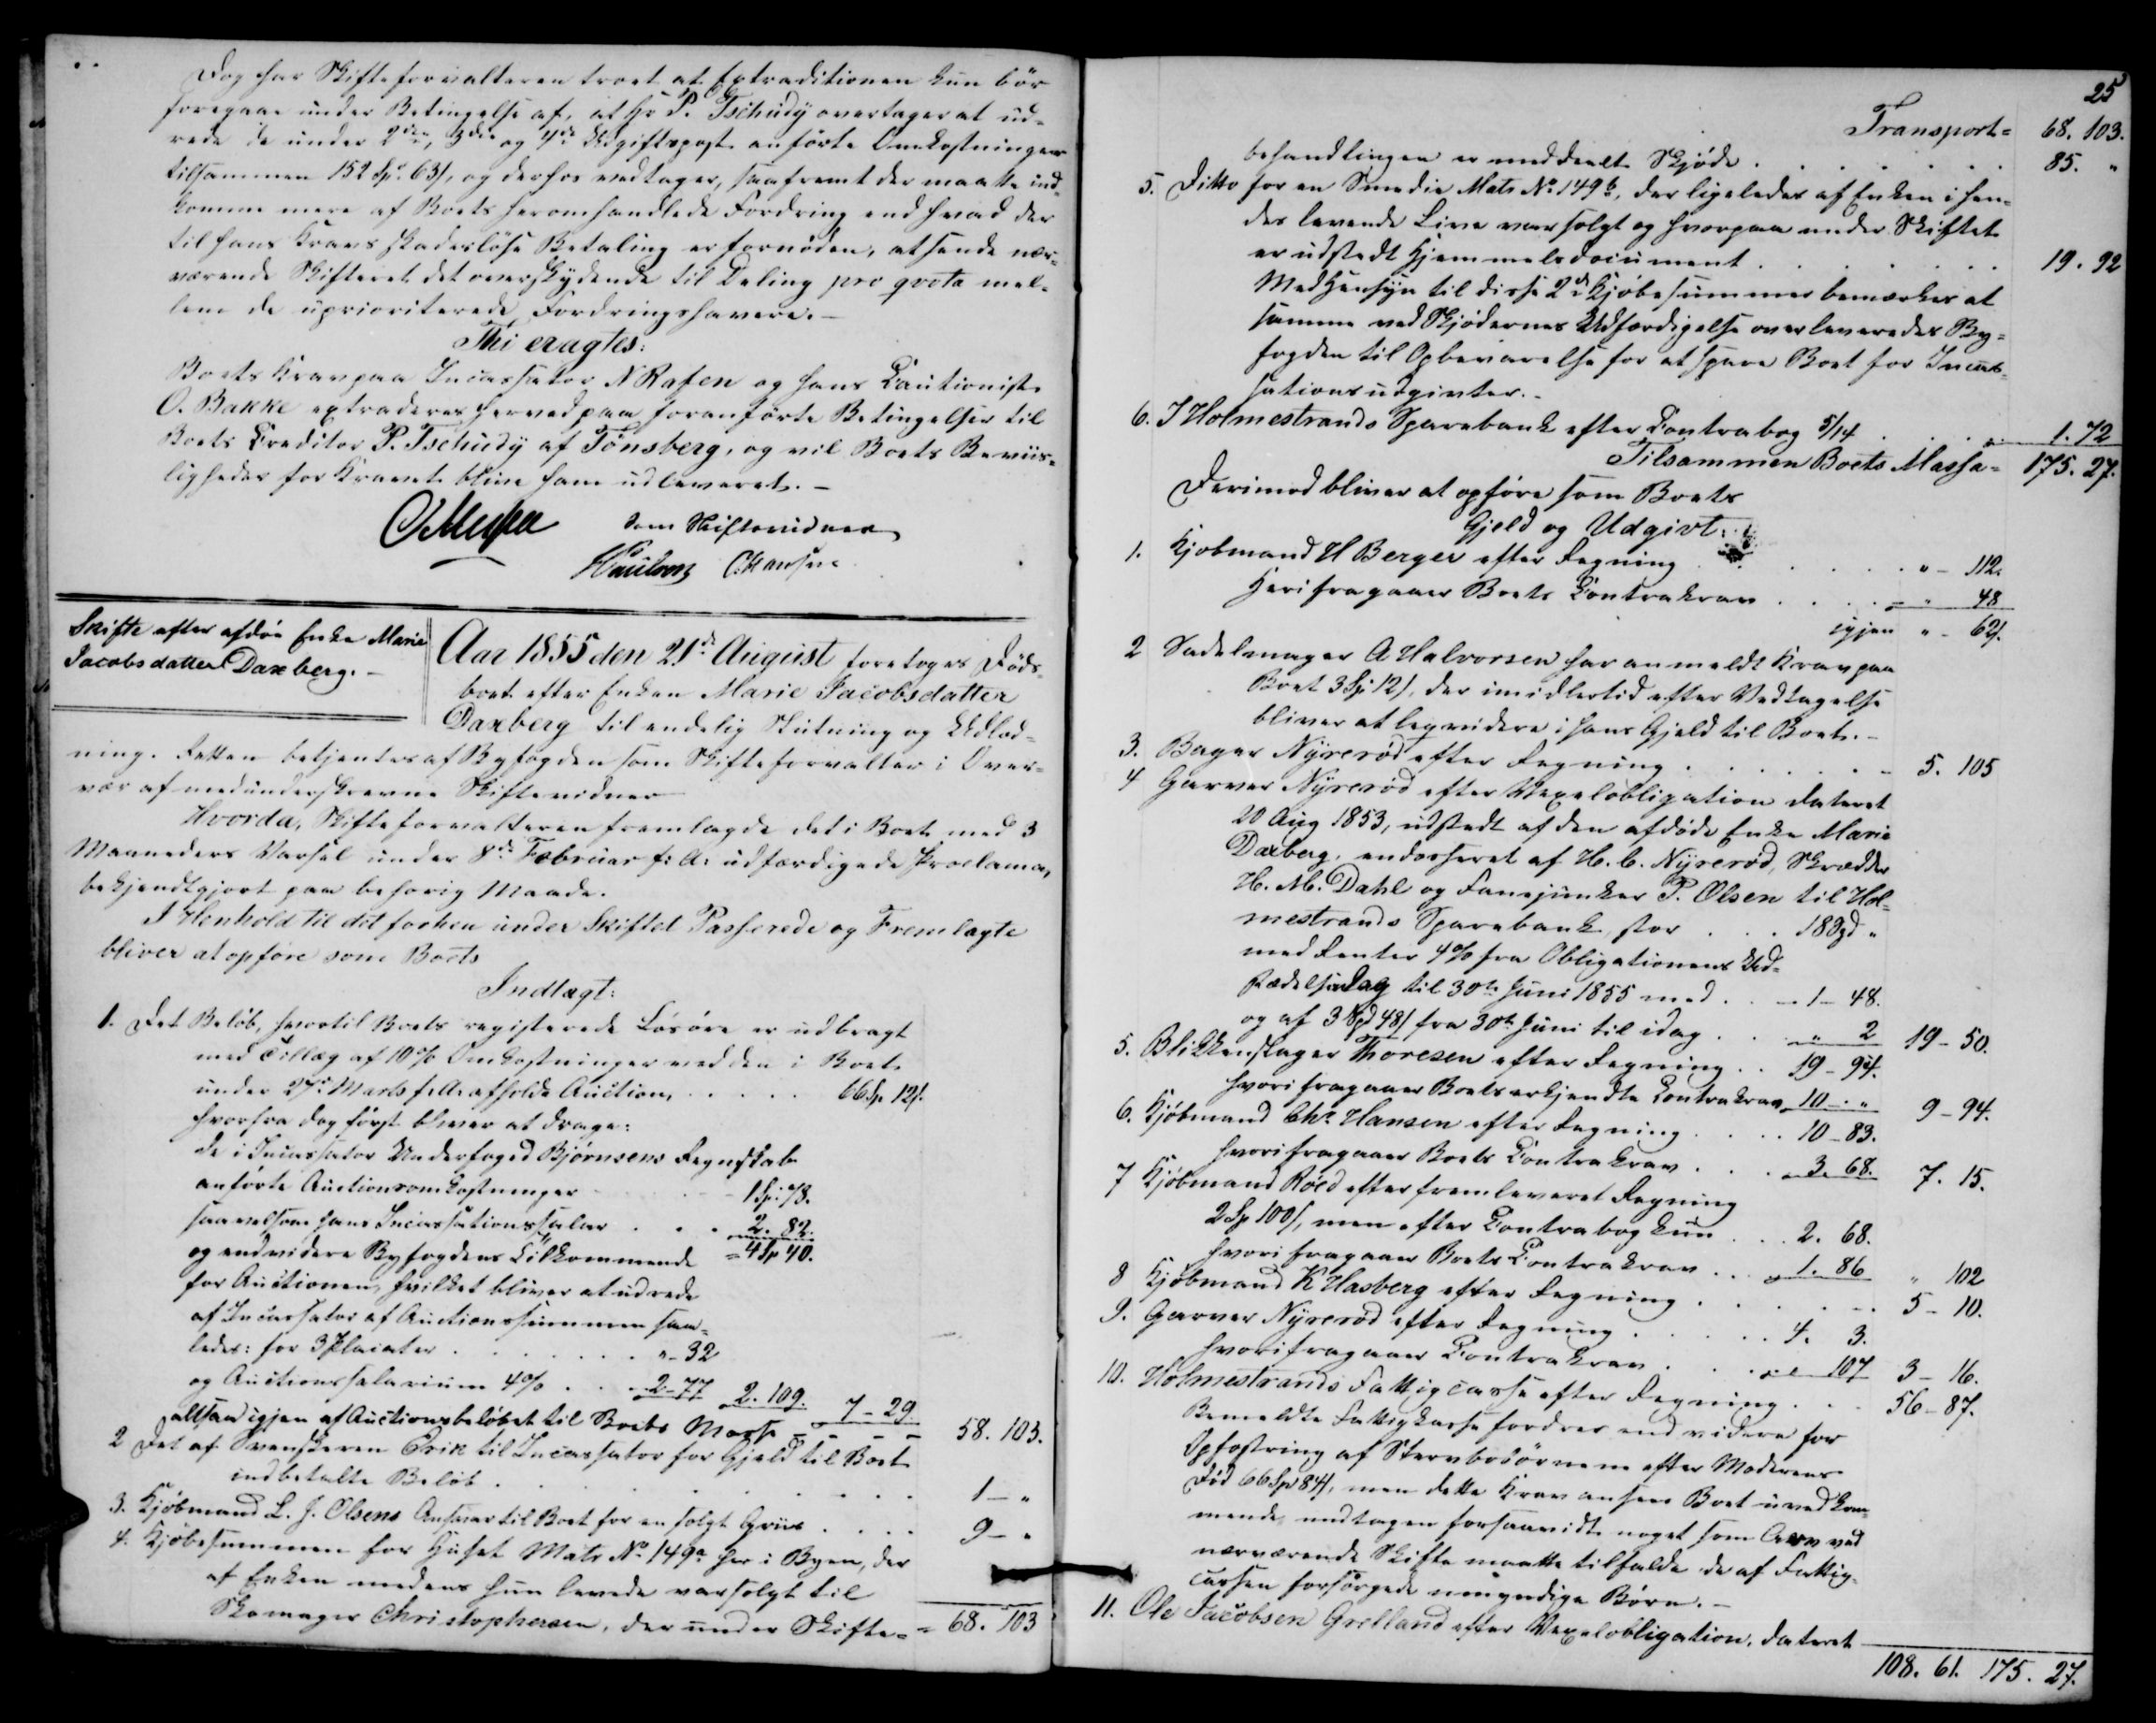 Dog har Skifteforvalteren troet at Extraditionen kun bör
foregaae under Betingelse af, at Hr P. Tschudy overtager at ud-
rede de under 2den, 3die og 4de Udgiftspost anförte Omkostninger
tilsammen 152 Sp. 63 ß, og derhos vedtager, saafremt der maatte ind-
komme mere af Boets heromhandlede Fordring end hvad der
til hans Kravs skadeslöse Betaling er fornöden, at sende nær-
værende Skifteret det overskydende til Deling pro qvota mel-
lem de uprioriterede Fordringshavere. –
Thi eragtes:
Boets Krav paa Incassator N Rafen og hans Cautionist
O. Bakke extraderes herved paa foranförte Betingelser til
Boets Creditor P. Tschudy af Tönsberg, og vil Boets Beviis-
ligheder for Kravet blive ham udleveret. –
som Skiftevidner
C. Hansen
Skifte efter afdöe Enke Marie
Jacobsdatter Daxberg. –
Aar 1855 den 21de August foretoges Döds-
boet efter Enken Marie Jacobsdatter
Daxberg til endelig Slutning og Udlod-
ning. Retten betjentes af Byfogden som Skifteforvalter i Over-
vær af medunderskrevne Skiftevidner
Hvorda, Skifteforvalteren fremlagde det i Boet med 3
Maaneders Varsel under 8de Februar f: A: udfærdigede Proclama,
bekjendtgjort paa behörig Maade.
I Henhold til det forhen under Skiftet Passerede og Fremlagte
bliver at opföre som Boets
Indtægt:
1. Det Belöb, hvortil Boets registerede Lösöre er udbragt
med Tillæg af 10% Omkostninger ved den i Boet
under 27de Marts f. A. afholdte Auction, . . . . . 66 Sp. 12 ß.
hvorfra dog först bliver at drage:
de i Incassator Underfoged Björnsens Regnskab
anförte Auctionsomkostninger . . . . 1 Sp: 78.
saavelsom hans Incassationssalær . . . 2. 82.
og endvidere Byfogdens Tilkommende = 4 Sp 40.
for Auctionen, hvilket bliver at udrede
af Incassator af Auctionssummen saa-
ledes: for 3 Placater . . . . . . . " - 32
og Auctionssalarium 4% . . . 2 - 77 2. 109. 7 - 29
altsaa igjen af Auctionsbelöbet til Boets Masse - - - - 58. 103.
2 Det af Svenskeren Erik til Incassator for Gjeld til Boet
indbetalte Belöb . . . . . . . . . . 1 - "
3. Kjöbmand L. J. Olsens Ansvar til Boet for en solgt Griis . . . . 9 - "
4. Kjöbesummen for Huset Matr No 149a her i Byen, der
af Enken medens hun levede var solgt til
Skomager Christophersen, der under Skifte- = 68. 103
25
Transport = 68. 103.
behandlingen er meddeelt Skjöde . . . . . . . . 85. "
5. Ditto for en Smedie Matr No 149b, der ligeledes af Enken i hen-
des levende Live var solgt og hvorpaa under Skiftet
er udstedt Hjemmelsdocument . . . . . . . 19. 92
Med Hensyn til disse 2de Kjöbesummer bemærkes at
samme ved Skjödernes Udfærdigelse overleveredes By-
fogden til Opbevarelse for at spare Boet for Incas-
sationsudgivter. –
6. I Holmestrands Sparebank efter Contrabog 5/14 . . . . 1. 72
Tilsammen Boets Massa = 175. 27.
Derimod bliver at opföre som Boets
Gjeld og Udgivt:
1. Kjöbmand H Berger efter Regning . . . . . . . " - 112.
Heri fragaaer Boets Contrakrav . . . . = " 48
igjen " - 64.
2 Sadelmager A Halvorsen har anmeldt Krav paa
Boet 3 Sp 12 ß, der imidlertid efter Vedtagelse
bliver at liqvidere i hans Gjeld til Boet. –
3. Bager Nyreröd efter Regning . . . . . . . - 5. 105
4 Garver Nyreröd efter Vexelobligation dateret
20 Aug 1853, udstedt af den afdöde Enke Marie
Daxberg, endosseret af H. C. Nyreröd, Skrædder
H. M. Dahl og Fanejunker P. Olsen til Hol-
mestrands Sparebank, stor . . . 18 Spd "
med Renter 4% fra Obligationens Ud-
stædelsesdag til 30te Juni 1855 med . . - 1 - 48.
og af 3 Spd 48 ß fra 30te Juni til idag . . " 2 19 - 50.
5. Blikkenslager Thoresen efter Regning . . 19 - 94.
hvori fragaaer Boets erkjendte Contrakrav 10 - " 9 - 94.
6. Kjöbmand Chr. Hansen efter Regning . . . . 10 - 83.
hvori fragaaer Boets Contrakrav . . . . 3. 68. 7. 15.
7 Kjöbmand Röed efter fremleveret Regning
2 Sp 100 ß, men efter Contrabog kun . . . 2. 68.
hvori fragaaer Boets Contrakrav . . . 1. 86 " 102
8 Kjöbmand K Hasberg efter Regning . . . . . . . . 5 - 10.
9. Garver Nyreröd efter Regning . . . . . . 4. 3.
hvori fragaaer Contrakrav . . . " 107 3 - 16.
10. Holmestrands Fattigcasse efter Regning . . . 56 - 87.
Bemeldte Fattigkasse fordrer endvidere for
Opfostring af Stervbobörnene efter Moderens
Död 66 Sp 84 ß, men dette Krav ansees Boet uvedkom-
mende, undtagen forsaavidt noget som Arv ved
nærværende Skifte maatte tilfalde de af Fattig-
cassen forsörgede umyndige Börn. –
11. Ole Jacobsen Grelland efter Vexelobligation, dateret
108. 61. 175. 27.